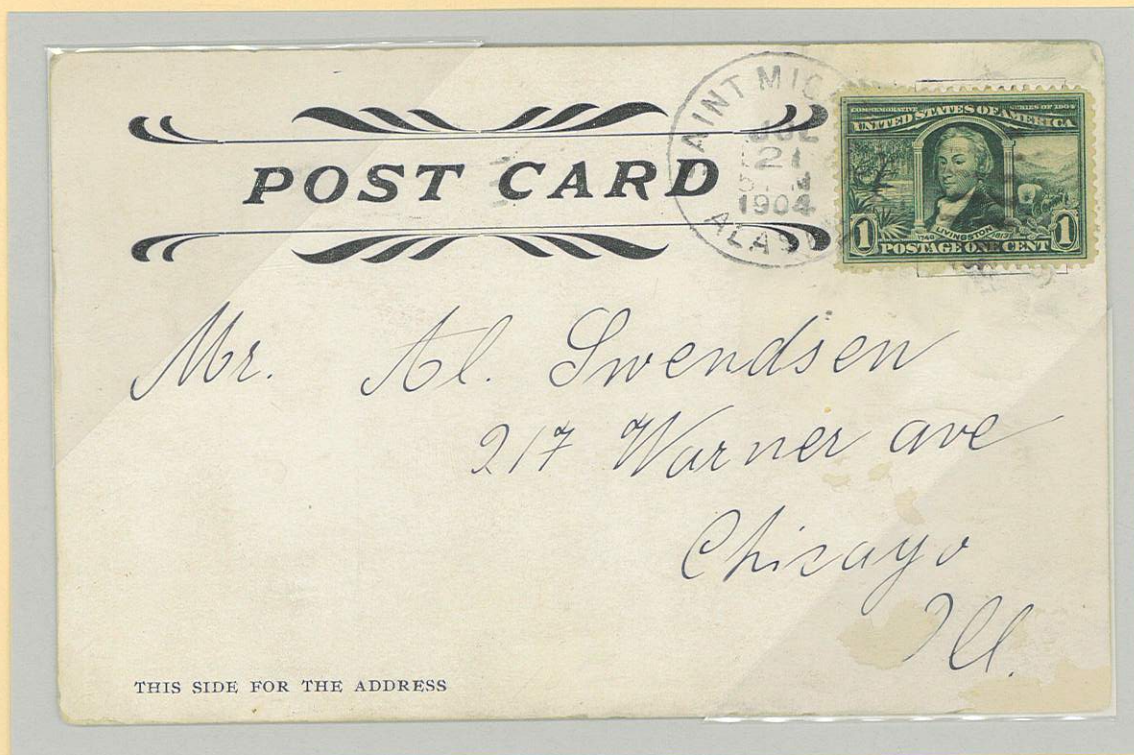 POST CARD
SAINT MIC
JUL
21
1904
ALAS
COMMEMORATIVE SERIES OF 1904
UNITED STATES OF AMERICA
1 LIVINGSTON 1
POSTAGE ONE CENT
Mr. Al. Swendsen
217 Warner ave
Chicago
Ill.
THIS SIDE FOR THE ADDRESS